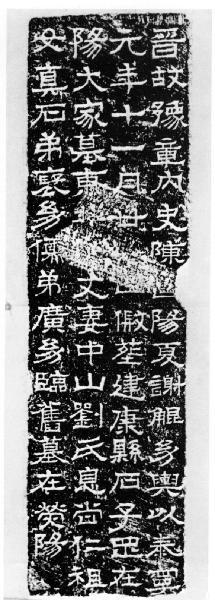 晉故豫章內史陳陽夏謝鯤幼輿以泰寧
元年十一月廿假葬建康縣石子罡在
陽大家墓東丈妻中山劉氏息尚仁祖
女真石弟裒幼儒弟廣幼臨舊墓在熒陽